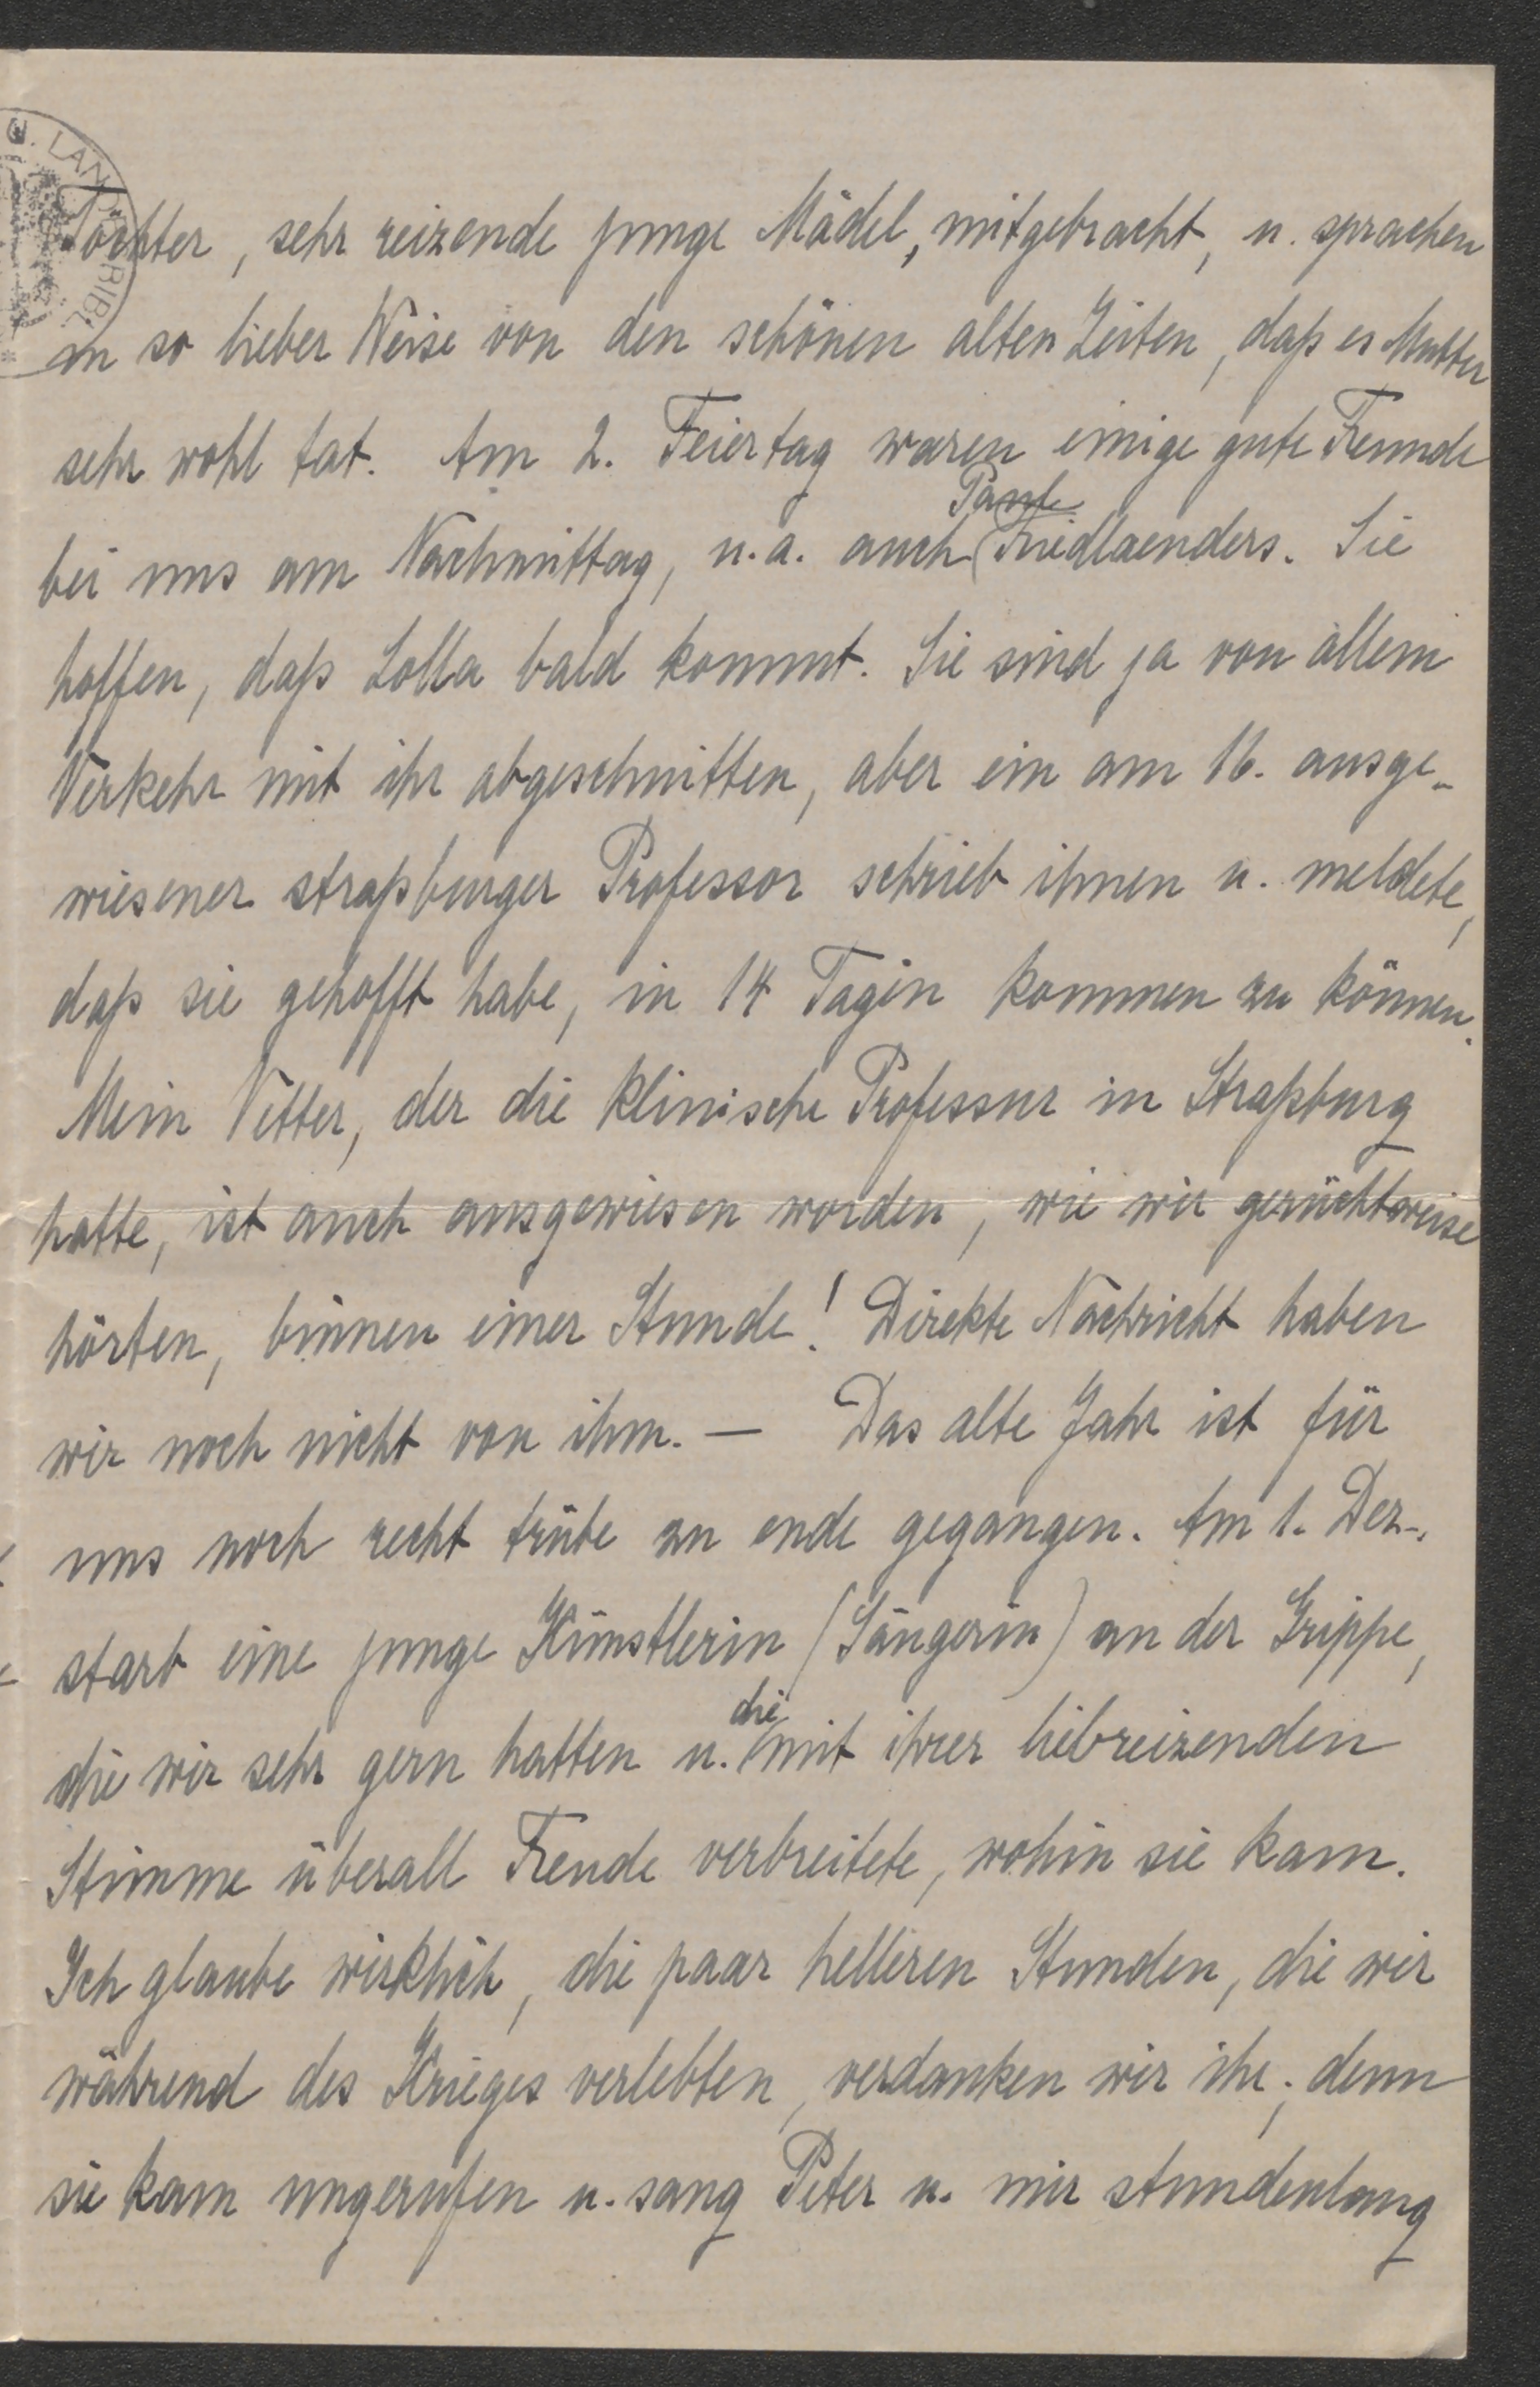 U. LANDESBIBL.
Töchter, sehr reizende junge Mädel, mitgebracht, u. sprachen
in so lieber Weise von den schönen alten Zeiten, daß es Mutter
sehr wohl tat. Am 2. Feiertag waren einige gute Freunde
Paul
bei uns am Nachmittag, u. a. auch Friedlaenders. Sie
hoffen, daß Lolla bald kommt. Sie sind ja von allem
Verkehr mit ihr abgeschnitten, aber ein am 16. ausge-
wiesener straßburger Professor schrieb ihnen u. meldete,
daß sie gehofft habe, in 14 Tagen kommen zu können.
Mein Vetter, der die klinische Professur in Straßburg
hatte, ist auch ausgewiesen worden, wie wir gerüchtweise
hörten, binnen einer Stunde! Direkte Nachricht haben
wir noch nicht von ihm. — Das alte Jahr ist für
uns noch recht trübe zu ende gegangen. Am 1. Dez.
starb eine junge Künstlerin (Sängerin) an der Grippe,
die wir sehr gern hatten u. die mit ihrer liebreizenden
Stimme überall Freude verbreitete, wohin sie kam.
Ich glaube wirklich, die paar helleren Stunden, die wir
während des Krieges verlebten, verdanken wir ihr; denn
sie kam ungerufen u. sang Peter u. mir stundenlang